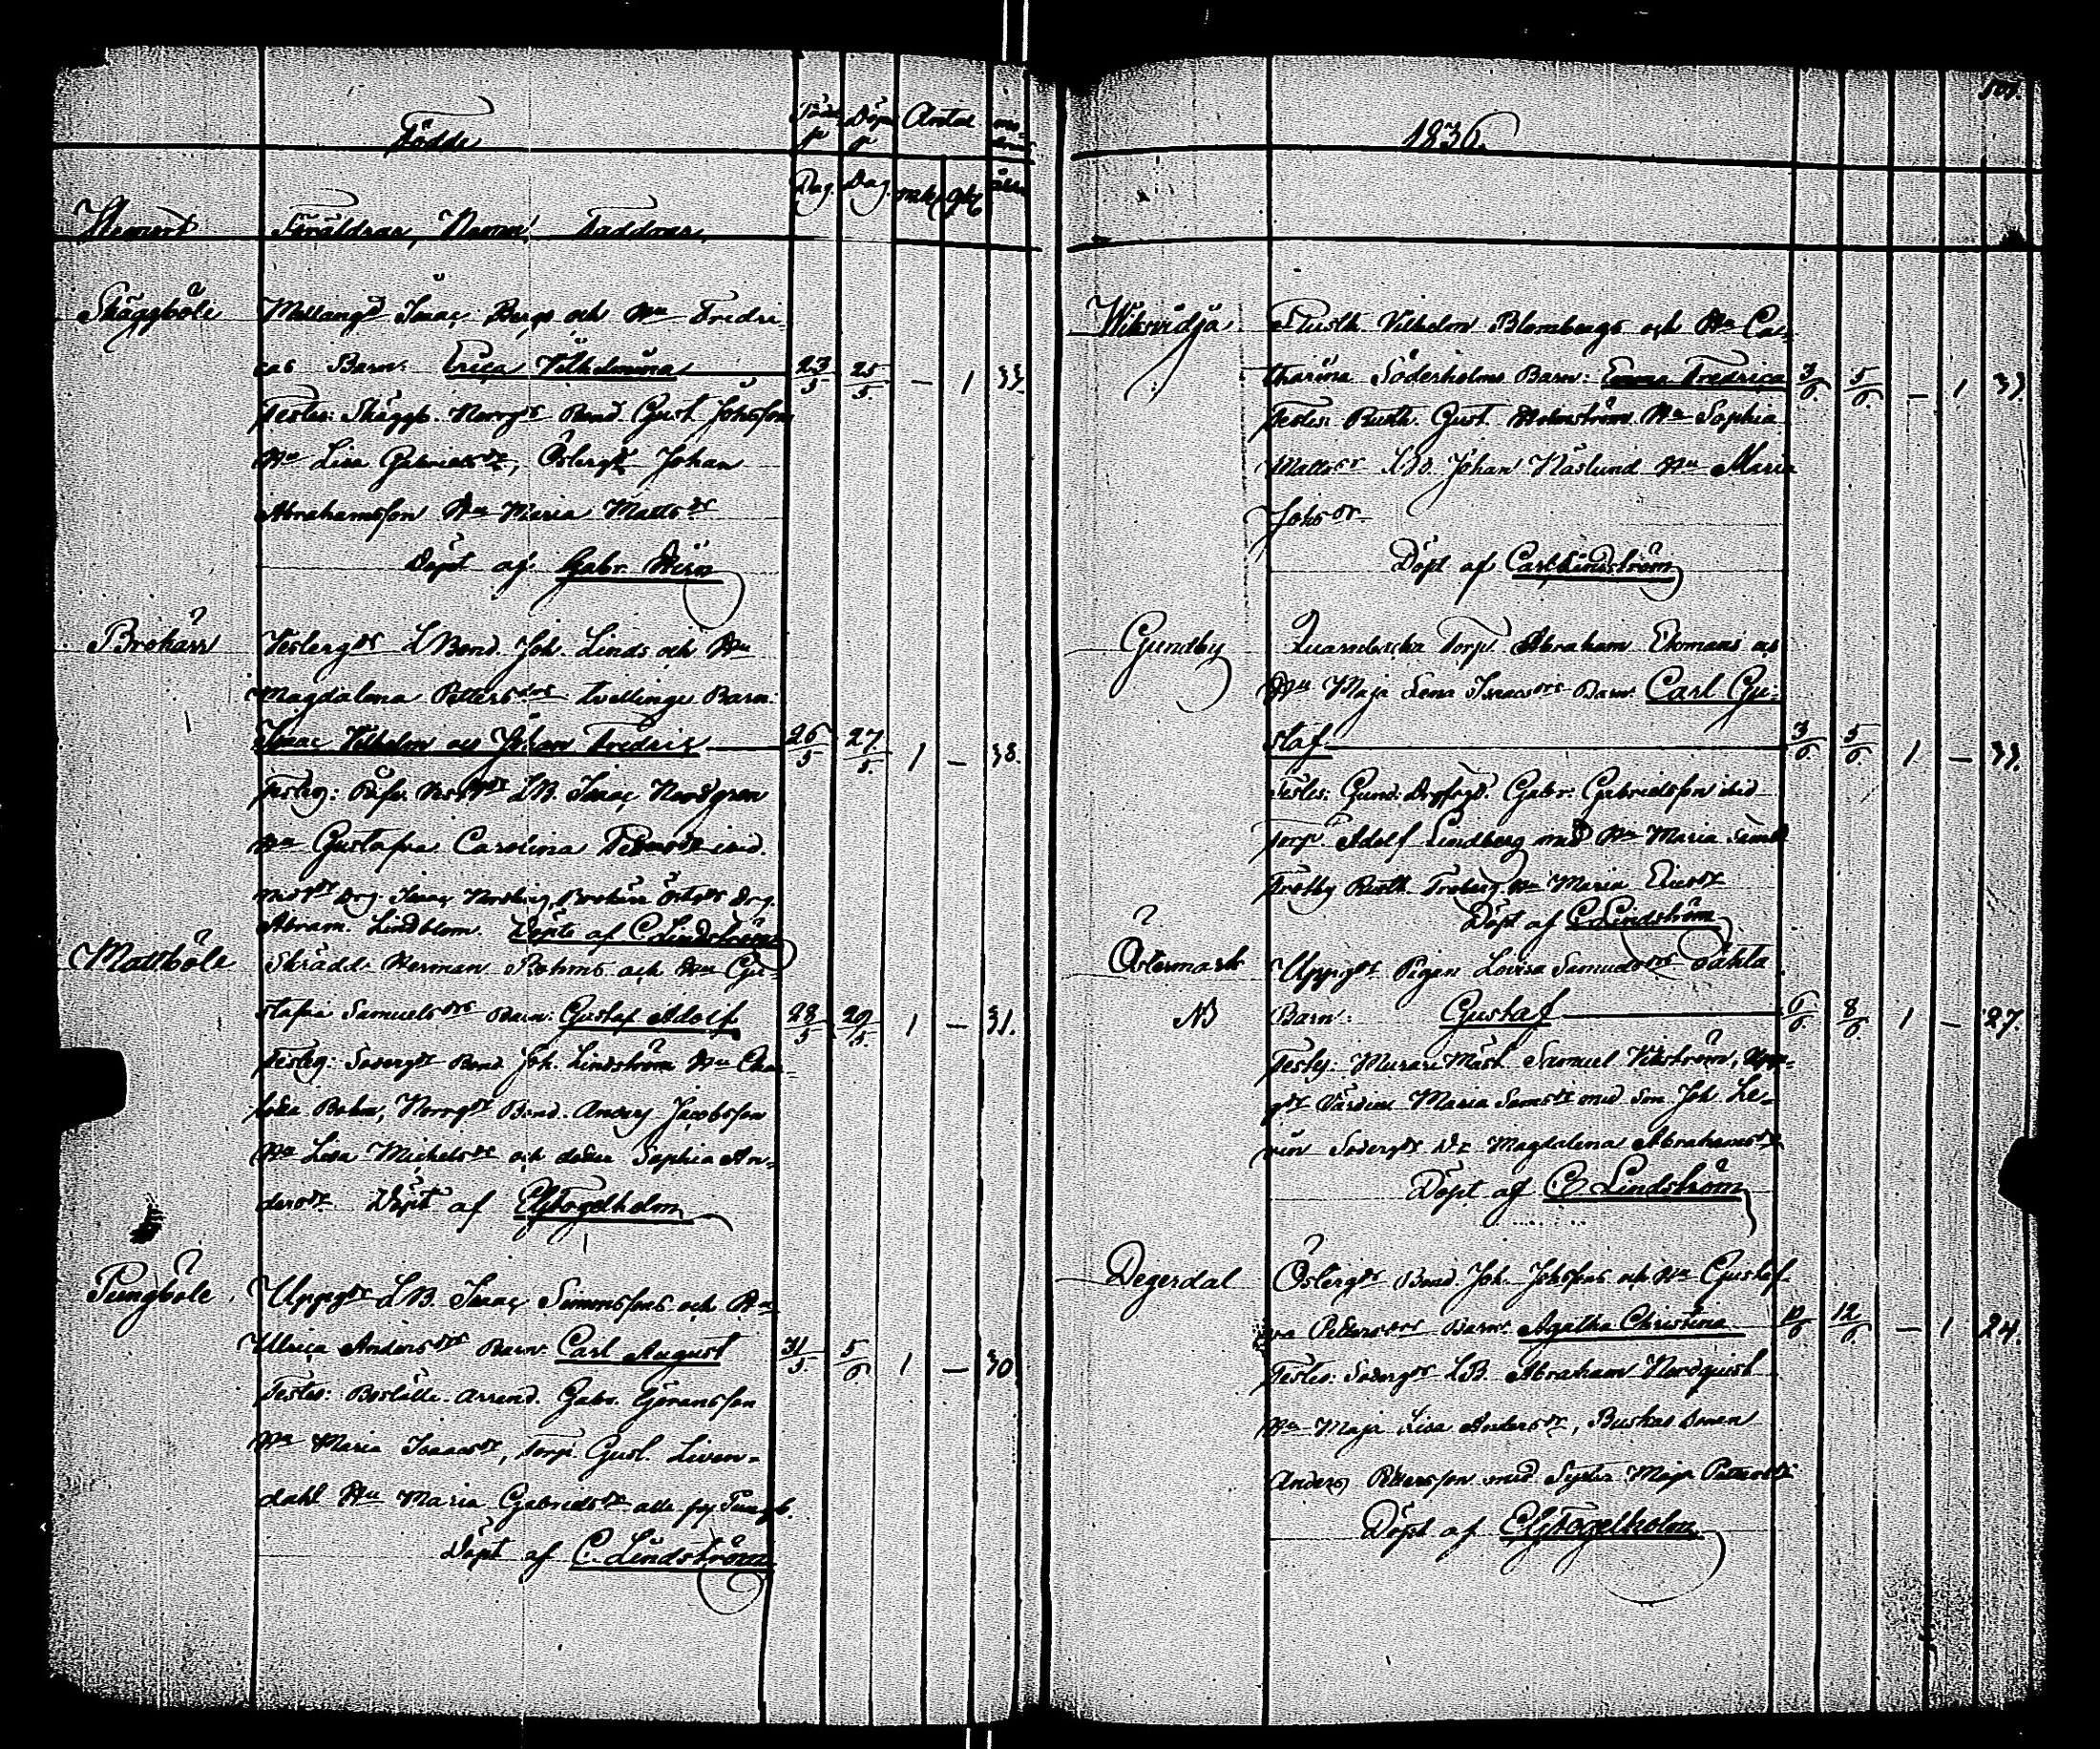 Födde
Född p
Döpt p
Antal
Dag
Dag
mk
qk
ålder
Hemort
Föräldrar, Namn, Faddrar,
Skäggböle
Mellangds Isaac Bergs och Hu Fredri-
cas Barn: Erica Vilhelmina 23/5 25/5 — 1 33.
Testes: Skäggb. Norrgds Bond. Gust. Johsson
Hu Lisa Gabrielsdr, Östergds Johan
Abrahamsson Hu Maria Mattsdr
Döpt af Gabr. Hirn
Brokärr
Vestergds LBond. Joh. Linds och Hu
Magdalena Pettersdrs Tvillinge Barn:
Isaac Vilhelm och Johan Fredric 26/5 27/5. 1 — 38.
LB. Isaac Nordgren
Hu Gustafva Carolina
drg. Isaac Brokärr drg.
Abram. Lindblom. Döpte af C Lindström
Mattböle
Skrädd. Herman Bohms och Hu Gu-
stafva Samuelsdrs Barn: Gustaf Adolf 28/5 29/5. 1 — 31.
Testes: Södergds Bond. Joh. Lindström Hu Char-
lotta Bohm, Norrgds Bond. Anders Jacobsson
Hu Lisa Michelsdr och Sophia An-
dersdr Döpt af Fogelholm
Pungböle
Uppgds LB. Isaac Simonssons och Hu
Ulrica Andersdrs Barn: Carl August 31/5. 5/6 1 — 30.
Testes: Boställs-arrend. Gabr. Göransson
Hu Maria Isaacsdr, Torp. Gust. Liven-
dahl Hu Maria Gabrielsdr alla fr Pungb.
Döpt af C. Lindström
1836.
Wiksvidja
Vilhelm Blombergs och Hu Ca-
tharina Söderholms Barn: Emma Fredrica 3/6. 5/6. — 1 33.
Testes: Rusth. Gust. Holmström Hu Sophia
Mattsdr LB. Johan Näslund Hu Maria
Johsdr
Döpt af Carl Lindström
Gundby
Torp. Abraham Ekmans och
Hu Maja Lena Isaacsdrs Barn: Carl Gu-
staf 3/6. 5/6. 1 — 33.
Testes: Gund. Gabr. Gabrielsson ibid
Torp. Adolf Lindberg med Hu Maria
Rusth. Froberg Hu Maria Ericsdr
Döpt af C. Lindström
Östermark
Uppgds Pigan Lovisa Samuelsdrs oäkta
NB
Barn: Gustaf 6/6. 8/6 1 — 27.
Testes: Murare Mäst. Samuel Vikström, Upp-
gds Värdin Maria Samsdr med Son Joh. Le-
vin Södergds Magdalena Abrahamsdr
Döpt af C Lindström
Degerdal
Östergds Bond. Joh. Johssons och Hu Gustaf-
va Pettersdrs Barn: Agatha Christina 12/6 — 1 24.
Testes: Södergds LB. Abraham Nordquist
Hu Maja Lisa Andersdr, Buskas
Anders Pettersson med Syster Maja Pettersdr
Döpt af Fogelholm